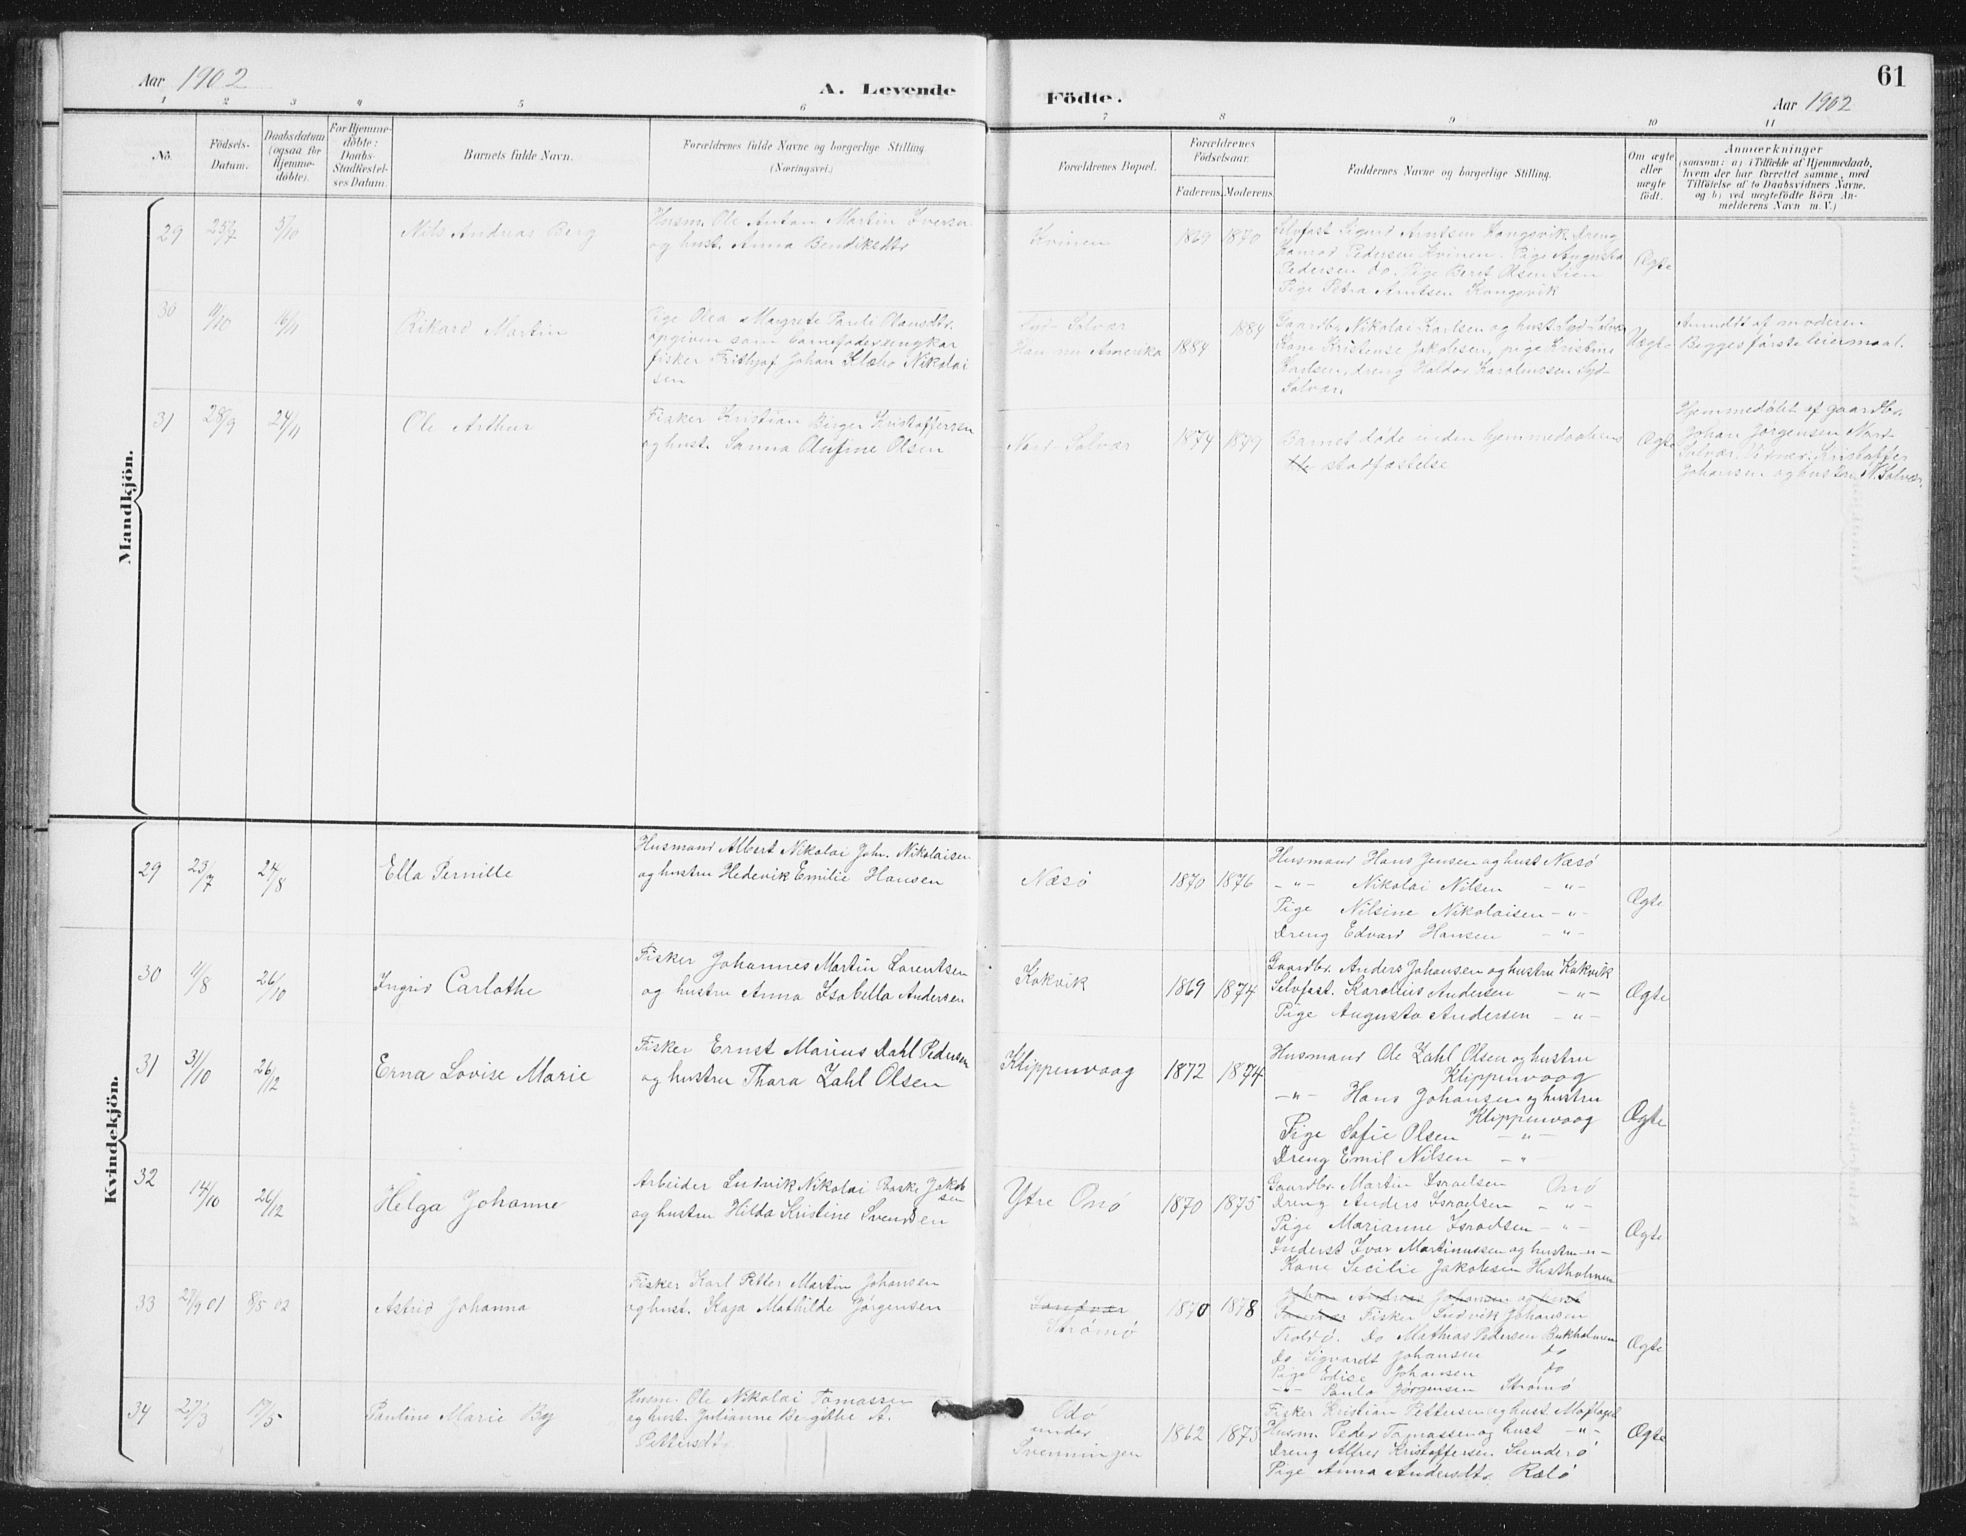 Aar 1902
A. Levende
Födte.
61
Aar 1902
1 2 3 4 5 6 7 8 9 10 11
No.
Födsels-
Datum.
Daabsdatum
(ogsaa for
Hjemme-
döbte).
For Hjemme-
döbte:
Daabs-
Stadfæstel-
ses Datum.
Barnets fulde Navn.
Forældrenes fulde Navne og borgerlige Stilling
(Næringsvei.)
Forældrenes Bopæl.
Forældrenes
Födselsaar.
Faderens. Moderens.
Faddernes Navne og borgerlige Stilling.
Om ægte
eller
uægte
födt.
Anmærkninger
(saasom: a) i Tilfælde af Hjemmedaab,
hvem der har forrettet samme, med
Tilföielse af to Daabsvidners Navne,
og b) ved uægtefödte Börn An-
melderens Navn m. V.)
Mandkjön.
29
5/10
Nils Andreas Berg
Husm. Ole Anton Martin Iversen
og hust. Anna Bendiksdtr
Kvinen
1869 1870
Selvfost Sigurd Arntsen Kongsvik. Dreng
Konrad Pedersen Kvinen. Pige Augusta
Pedersen do. Pige Beret Olsen Lien
Pige Petra Arntsen Kongsvik
Ægte
30
11/10
16/11
Rikard Martin
Pige Olea Margrete Pauli Olausdtr.
opgiven som barnefader ungkar
fisker Frithjof Johan Klæbo Nikolai
sen
Syd-Solvær
Han nu Amerika
1884
1884
Gaardbr. Nikolai Karlsen og hust. Syd-Solvær
Kone Kristense Jakobsen, pige Kristine
Karlsen, dreng Haldor Karoliussen Syd-
Solvær.
Uægte
Anmeldt af moderen
Begges förste leiermaal.
31
28/9
24/11
Ole Arthur
Fisker Kristian Birger Kristoffersen
og hust. Sanna Olufine Olsen
Nord-Solvær
1874 1879
Barnet döde inden hjemmedaabens
stadfæstelse
Ægte
Hjemmedöbt af gaardbr.
Johan Jörgensen Nord-
Solvær. Vidner: Kristoffer
Johansen og hustru N. Solvær.
Kvindekjön.
29
23/7
24/8
Ella Pernille
Husmand Albert Nikolai Joh. Nikolaisen
og hustru Hedevik Emilie Hansen
Næsö
1870 1876
Husmand Hans Jensen og hust Næsö
-"- Nikolai Nilsen -"-
Pige Nilsine Nikolaisen -"-
Dreng Edvard Hansen -"-
Ægte
30
11/8
26/10
Ingrid Carlothe
Fisker Johannes Martin Lorentsen
og hustru Anna Isabella Andersen
Kokvik
1869 1874
Gaardbr. Anders Johansen og hustru Kokvik
Selvfost. Karolius Andersen -"-
Pige Augusta Andersen -"-
Ægte
31
31/10
26/12
Erna Lovise Marie
Fisker Ernst Marius Dahl Pedersen
og hustru Thara Zahl Olsen
Klippenvaag
1872 1874
Husmand Ole Zahl Olsen og hustru
Klippenvaag
-"- Hans Johansen og hustru
Klippenvaag
Pige Sofie Olsen -"-
Dreng Emil Nilsen -"-
Ægte
32
14/10
26/12
Helga Johanne
Arbeider Ludvik Nikolai Baske Jakob
sen
og hustru Hilda Kristine Svendsen
Ytre Onö
1870 1875
Gaardbr. Martin Israelsen Onö
Dreng Anders Israelsen -"-
Pige Marianne Israelsen -"-
Inderst Ivar Martinussen og hustru -"-
Kone Secilie Jakobsen Hestholmen
Ægte
33
27/9 01
8/5 02
Astrid Johanna
Fisker Karl Petter Martin Johansen
og hust. Kaja Mathilde Jörgensen
Sandvær
Strömö
1870 1878
Johan Andreas Johansen og hust
Fisker Ludvik Johansen
Troldö. Do Mathias Pedersen Bukholmen
Do Sigvardt Johansen do
Pige Edise Johansen do
-"- Paula Jörgensen Strömö
Ægte
34
27/3
17/5
Pauline Marie By
Husm. Ole Nikolai Tomassen
og hust. Julianne Bergitthe A.
Pettersdtr
Odö
under
Svenningen
1862 1873
Fisker Kristian Pettersen og hust.
Husm. Peder Tomassen og hust -"-
Dreng Alfred Kristoffersen Sunderö
Pige Anna Andersdtr. Rælö
Ægte